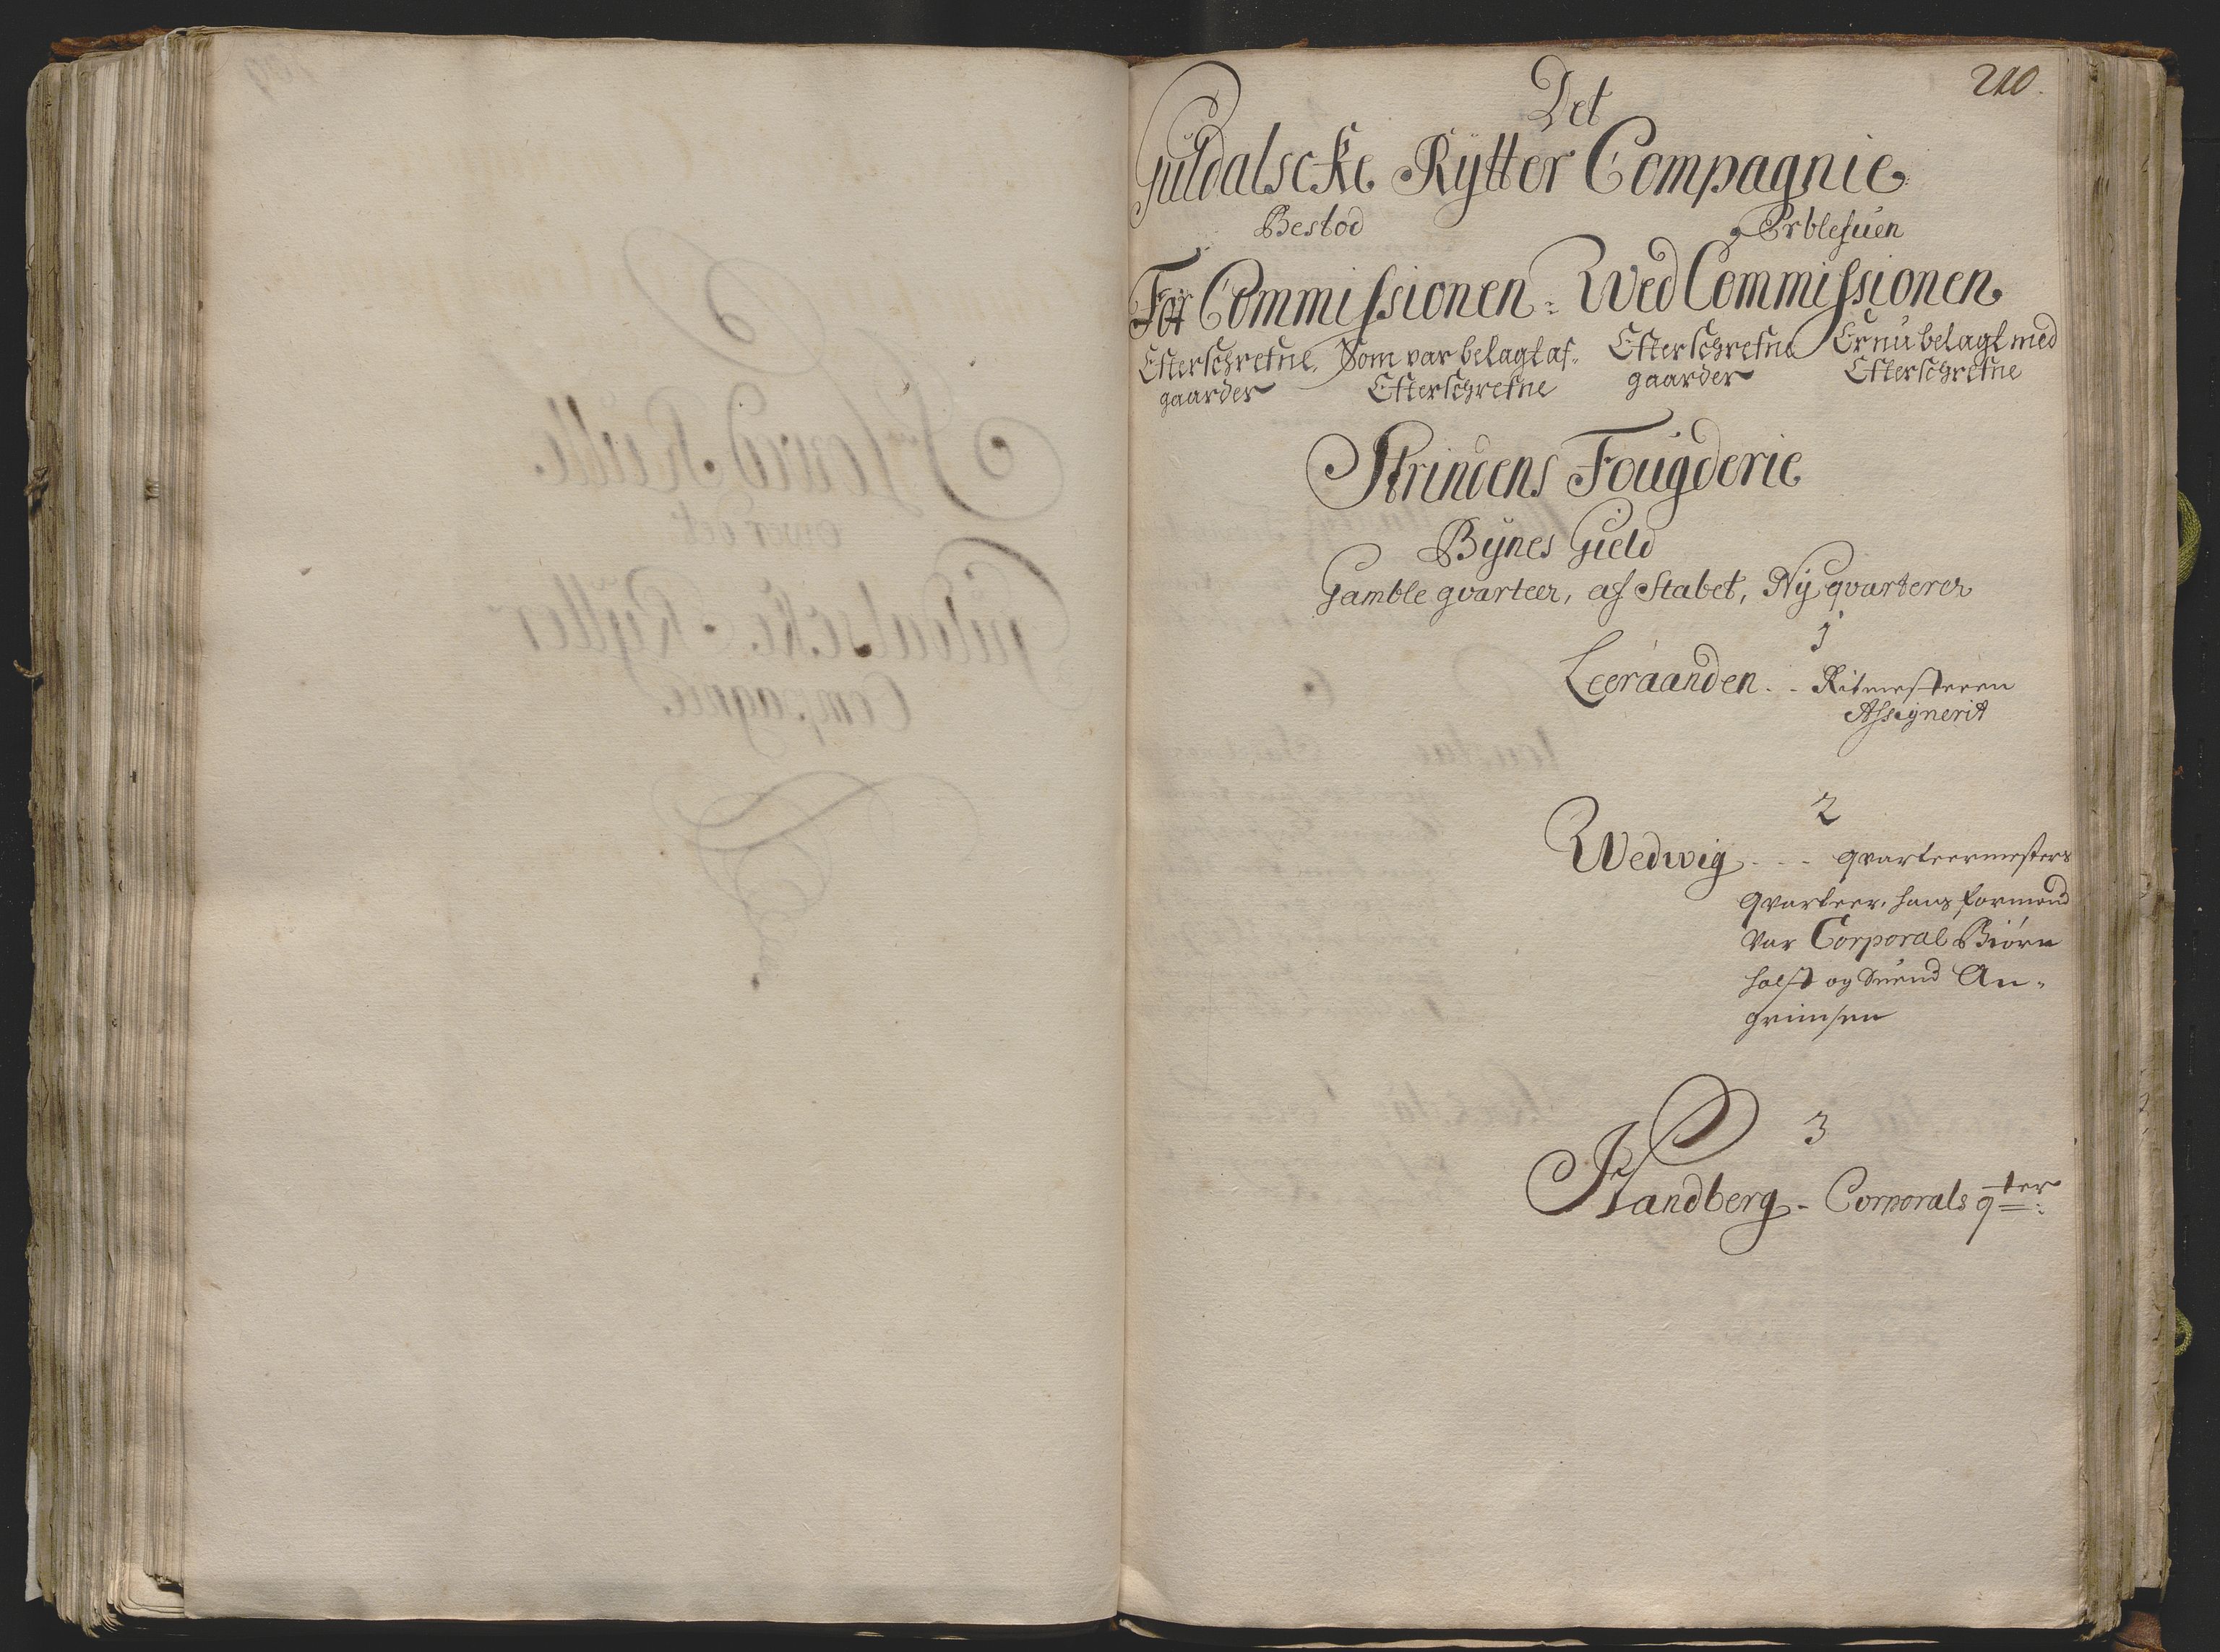 210.
Det
Guldalscke Rytter Compagnie
Bestod Er blefuen
För Commissionen: Wed Commissionen
Effterschrefne, Som var belagt af Effterschrefne Er nu belagt med
gaarder Effterschrefne gaarder Effterschrefne
Strindens Fougderie
Bÿnes Gield
Gamble qvarteer, af Stabet, Nÿ qvarterer
1
Leeraanden . . Ritmesteren
Assignerit
2
Wedwig . . . qvarteermesters
qvarteer, hans formend
var Corporal Biørn
holst og Svend An-
grimsen
3
Sandberg - Corporals qter